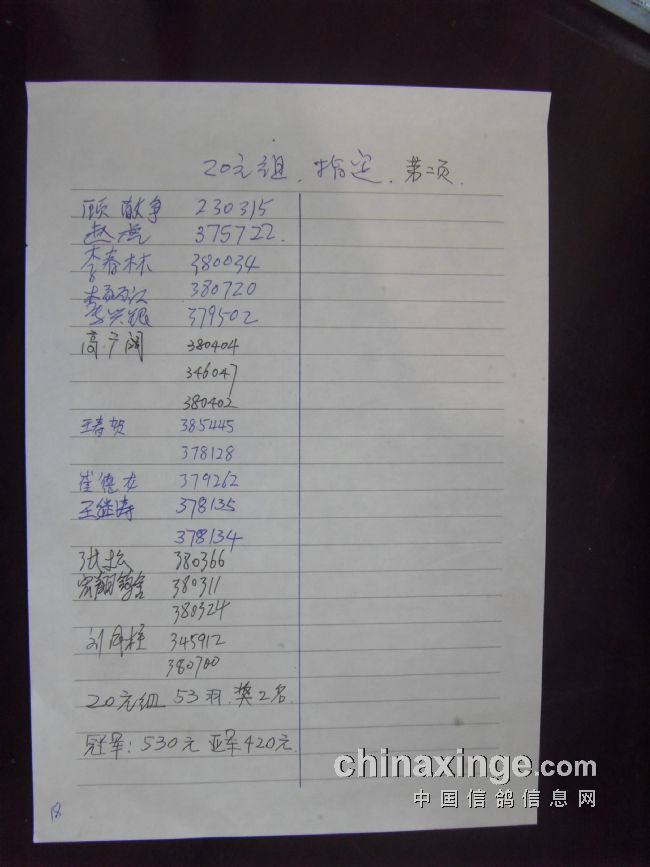 20元组、指定、第二页.
顾献争 230315
赵虎 375722.
李春林 380034
李 380720
李兴银 379502
高广阔 380404
346047
380402
王春贺 385445
378128
崔德龙 379262
王继涛 378135
378134
张松 380366
宏翔鸽舍 380311
380324
刘月柱 345912
380700
20元组 53羽.奖2名.
冠军:530元 亚军420元.
18
chinaxinge.com
中国信鸽信息网